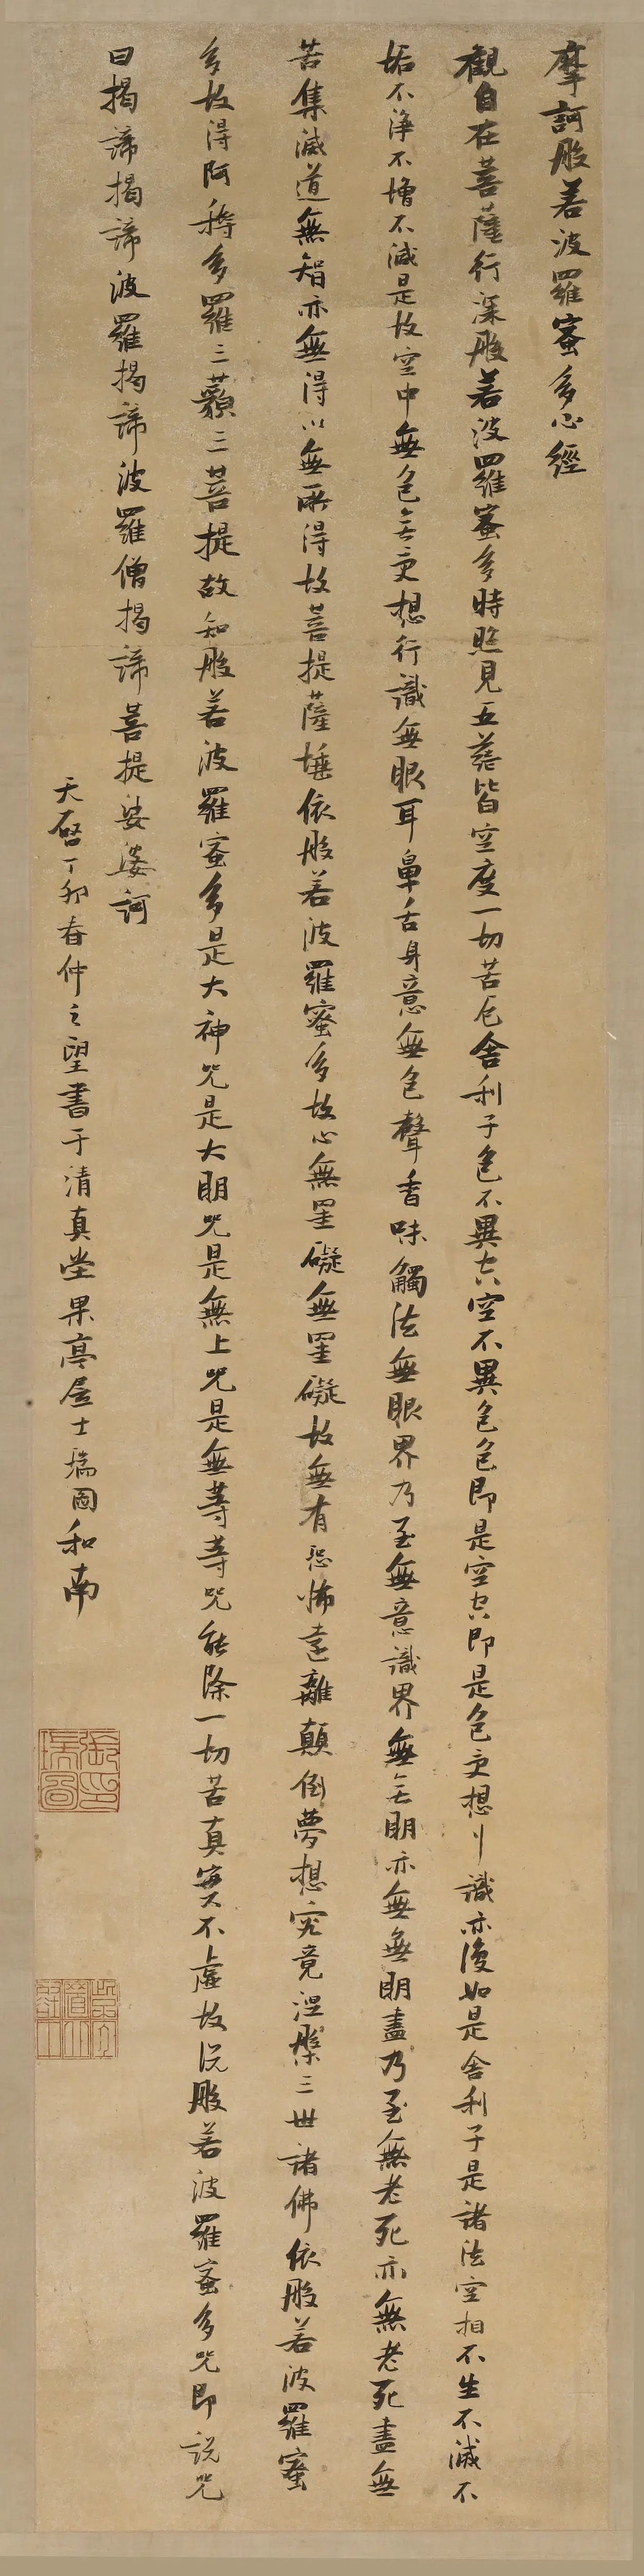 摩訶般若波羅蜜多心經
觀自在菩薩行深般若波羅蜜多時照見五蘊皆空度一切苦厄舍利子色不異空空不異色色即是空空即是色受想行識亦復如是舍利子是諸法空相不生不滅不
垢不淨不增不減是故空中無色無受想行識無眼耳鼻舌身意無色聲香味觸法無眼界乃至無意識界無無明亦無無明盡乃至無老死亦無老死盡無
苦集滅道無智亦無得以無所得故菩提薩埵依般若波羅蜜多故心無罣礙無罣礙故無有恐怖遠離顛倒夢想究竟涅槃三世諸佛依般若波羅蜜
多故得阿耨多羅三藐三菩提故知般若波羅蜜多是大神咒是大明咒是無上咒是無等等咒能除一切苦真實不虛故說般若波羅蜜多咒即說咒
曰揭諦揭諦波羅揭諦波羅僧揭諦菩提娑婆訶
天啓丁卯春仲之望書于清真堂果亭居士瑞圖和南
張瑞圖印